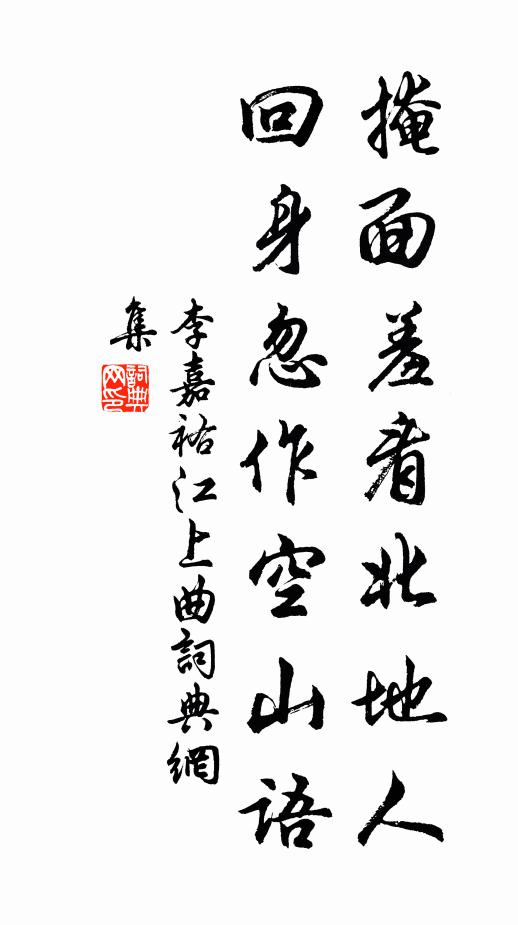 掩面羞看北地人
回身忽作空山語
李嘉祐江上曲詞典網
集
詞典
网印